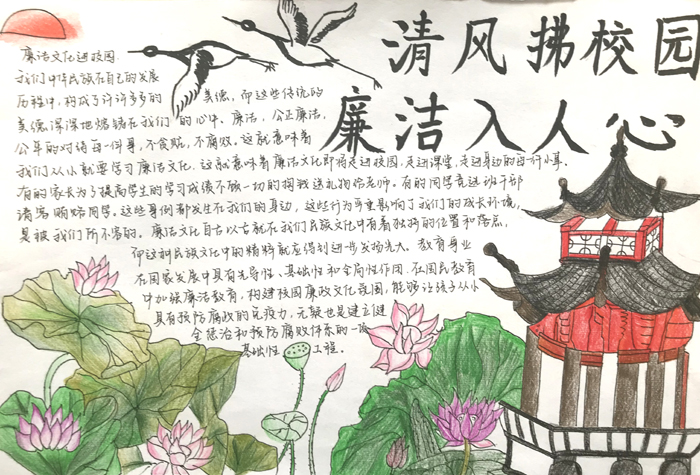 清风拂校园
廉洁入人心
廉洁文化进校园
我们中华民族在自己的发展
历程中，构成了许许多多的美德，而这些传统的
美德深深地熔铸在我们的心中。廉洁，公正廉洁，
公平的对待每一件事，不贪赃，不腐败。这就意味着
我们从小就要学习廉洁文化。这就意味着廉洁文化即将走进校园，走进课堂，走进身边的每一件小事。
有的家长为了提高学生的学习成绩不顾一切的掏钱送礼物给老师。有的同学竞选班干部
请客贿赂同学。这些事例都发生在我们的身边，这些行为严重影响了我们的成长环境，
是被我们所不容的。廉洁文化自古以古就在我们民族文化中有着独特的位置和落点，
而这种民族文化中的精粹就应得到进一步发扬光大。教育事业
在国家发展中具有先导性、基础性和全局性作用。在国民教育
中加强廉洁教育，构建校园廉政文化氛围，能够让孩子从小
具有预防腐败的免疫力，无疑也是建立健
全惩治和预防腐败体系的一项
基础性工程。